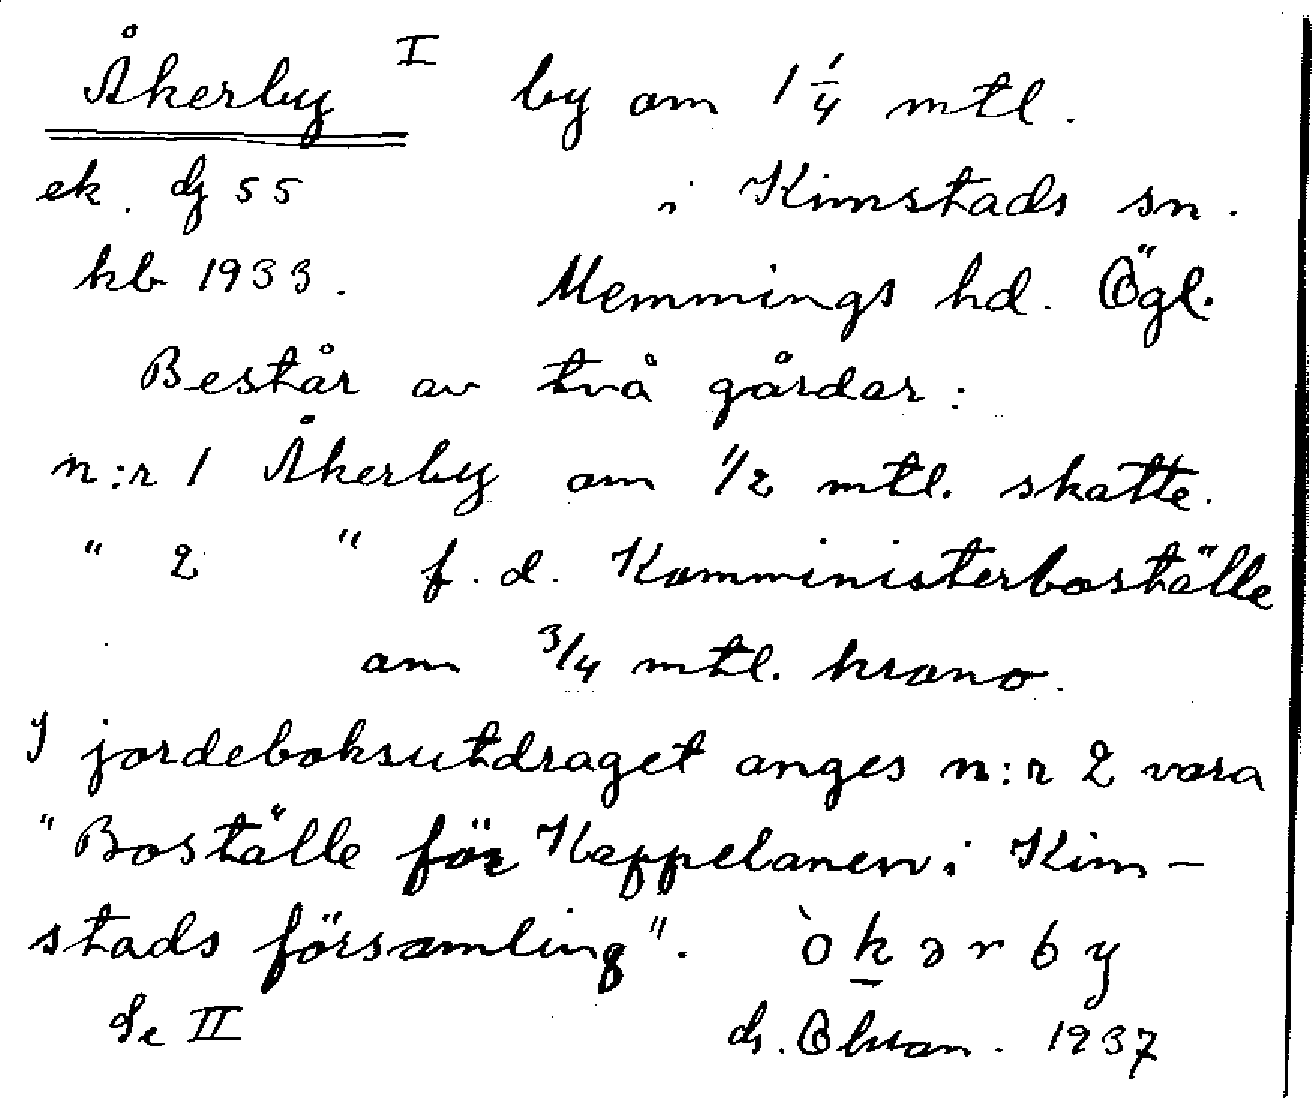 Åkerby I by om 1 1/4 mtl.
ek. dz 55 i Kimstads sn.
kb 1933. Memmings hd. Ögl.
Består av två gårdar:
n:r 1 Åkerby om 1/2 mtl. skatte.
" 2 " f.d. Komministerboställe
om 3/4 mtl. krono.
I jordeboksutdraget anges n:r 2 vara
"Boställe för Kappelanen i Kim-
stads församling". òkərby
Se II 1937